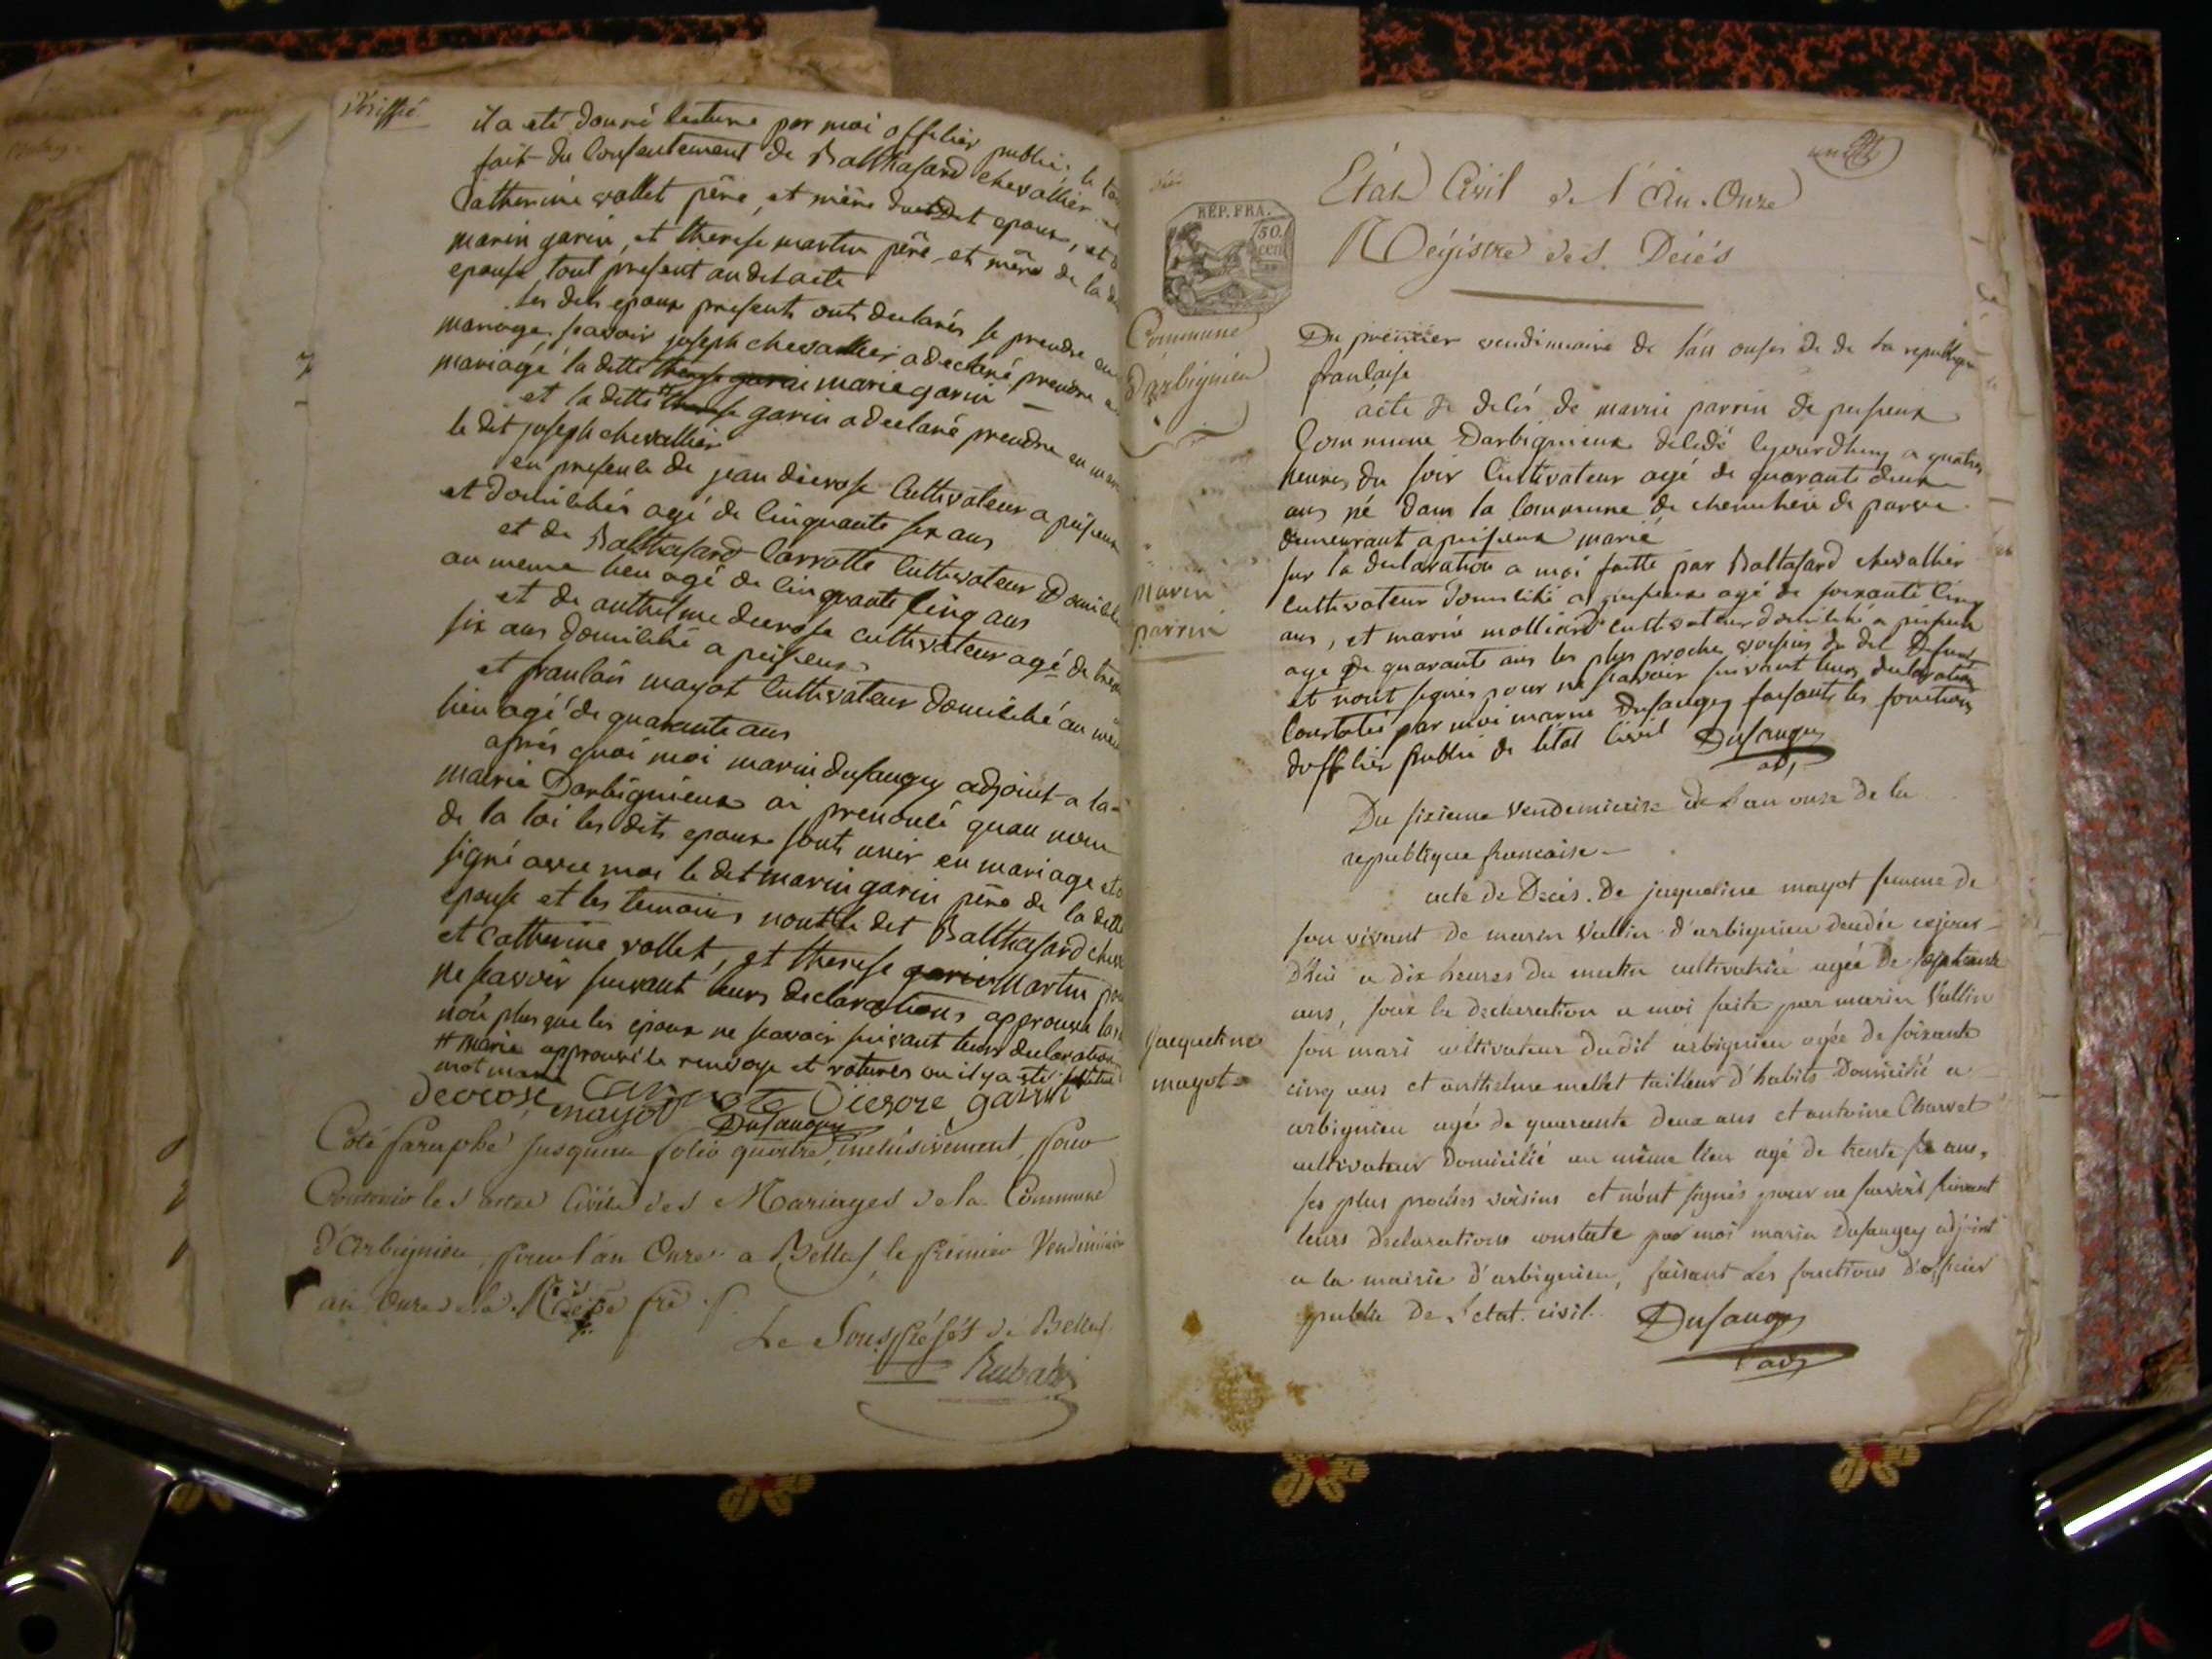 Vériffié
il a eté donné lecture par moi offilier public, le to
fait du Consentement de Balthasard chevallier et
Catherine vollet père, et mère du dit epoux, et d
marin garin, et therese martin père et mère de la d
epouse tout present audit acte
les dits epoux presents onts declarés se prendre en
mariage scavoir joseph chevallier a declaré prendre e
mariagé la ditte therese garin marie garin
et la ditte therese garin a declaré prendre en mar
le dit joseph chevallier
en presence de jean décrose Cultivateur a peisieux
et domilihés agé de Cinquante six ans
et de Balthasard Carrotte Cultivateur Domicilié
au meme lieu agé de Cinquante Cinq ans
et de anthelme decrose cultivateur agé de trente
six ans domilihé a peisieux
et franlois mayot Cultivateur domilihé au mem
lieu agé de quarante ans
aprés quoi moi marin dusaugey adjoint a la
mairie Darbignieux ai prenoncé quau nom
de la loi les dits epoux sont unir en mariage et o
signé avec moi le dit marin garin père de la ditte
epouse et les temoins nont le dit Balthasard chev
et Catherine vollet, et therese garin martin po
ne scavoir suivant leurs declarations approuvé la
non plus que les epoux ne scavoir suivant leurs declaration
# marie approuvé le renvoye et ratures ou il y a eté
mot marie
decrose mayot Diecroze garin
Dusaugey
Coté Paraphé jusquau folio quatre, inclusivement, Pour
Contenir les actes Civils des Mariages de la Commune
d'arbignieu, pour l'an Onze a Belley, le Premier Vendémiaire
an Onze de la
Le Souspréfét de Belley
Rubat
Etat Civil de l'An Onze
Régistre des Décés
RÉP. FRA.
50 cent
Commune
Darbignieu
Du premier vendimiaire de lan onse de la republique
franlaise
acte de decés de marin parrin de peisieux
Commune Darbignieux decedé lejourdhuy a quatres
heures du soir Cultivateur agé de quarante deux
ans né dans la Commune de
demeurant a peisieux marié
sur la declaration a moi faitte par Baltasard chevallier
Cultivateur domilihé a peisieux agé de soixante Cinq
ans, et marin molliard cultivateur domilihé a peisieux
age de quarante ans les plus proche voisins du dit defunt
et nont signés pour ne scavoir suivant leurs declaration
Constatés par moi marin Dusaugey faisants les fonctions
doffilier public de letat Civil Dusaugey
adj
marin
parrin
Du sixieme Vendemiaire de l'an onze de la
republique francaise
acte de Deces. De jaqueline mayot femme de
son vivant de marin Vallin d'arbignieu decedée cejour
d'hui a dix heures du matin cultivatrice agée De septante
ans, sous la declaration a moi faite par marin Vallin
son mari cultivateur dudit arbignieu agée de soixante
cinq ans et anthelme mellet tailleur d'habits Domicilié a
arbignieu agé de quarante deux ans et antoine Charvet
cultivateur Domicilié au même lieu agé de trente six ans,
ses plus proches voisins et n'ont signés pour ne savoir suivant
leurs declarations constate par moi marin Dusaugey adjoint
a la mairie d'arbignieu, faisant les fonctions d'officier
public de l'etat civil. Dusaugey
l'adj
Jacqueline
mayot